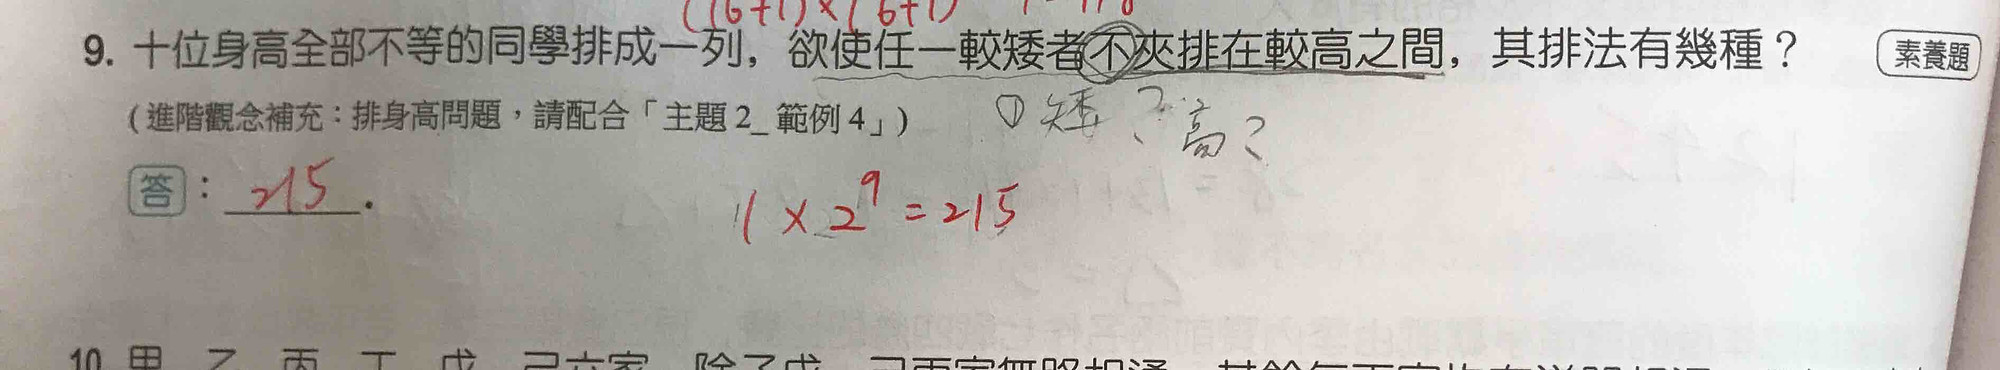 ((6+1)×(6+1)
9. 十位身高全部不等的同學排成一列，欲使任一較矮者不夾排在較高之間，其排法有幾種？ 素養題
(進階觀念補充：排身高問題，請配合「主題2_範例4」)
① 矮？高？
答：215.
1×2^9=215
10 甲、乙、丙、丁、戊、己六家，除了戊、己兩家無路相通，其餘每兩家均有道路相通